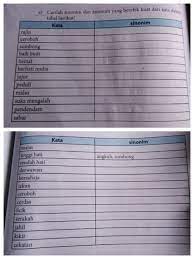 Carilah sinonim dan antonim yang bersifat kuat dari kata dalam
tabel berikut!
Kata sinonim
rajin
ceroboh
sombong
baik hati
hemat
berhati mulia
jujur
peduli
malas
suka mengalah
pendendam
sabar
Kata sinonim
malas
tinggi hati angkuh, sombong
rendah hati
dermawan
bersahaja
ulet
ceroboh
cerdas
licik
serakah
jahil
kikir
cekatan